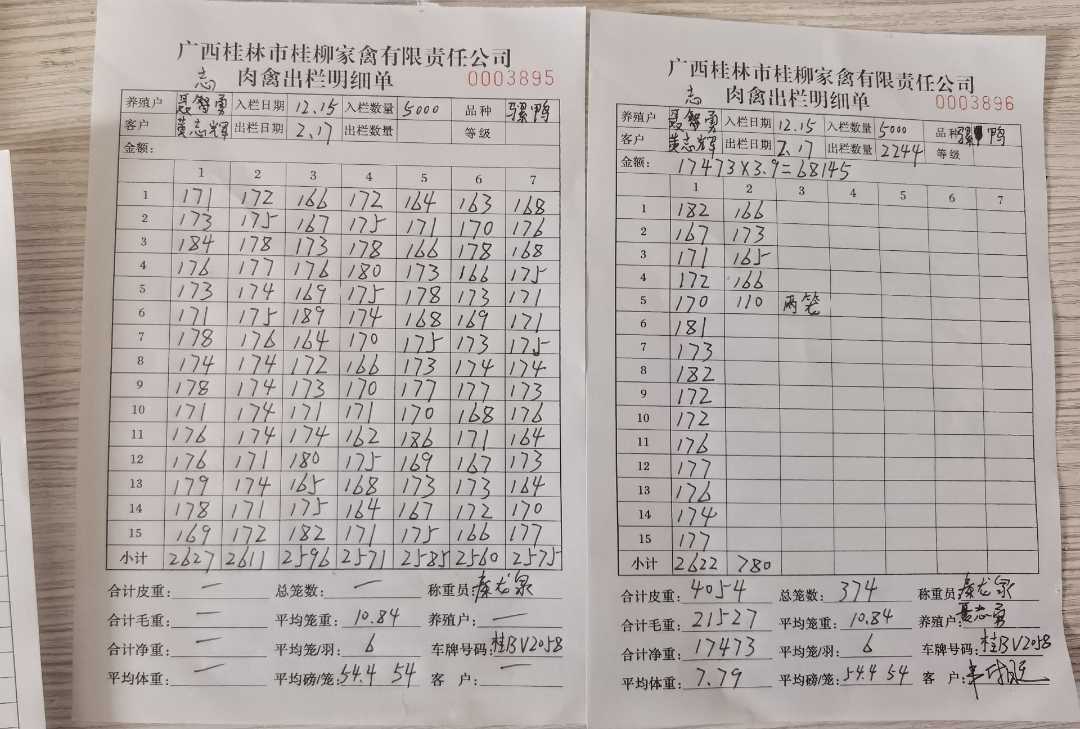 广西桂林市桂柳家禽有限责任公司
肉禽出栏明细单 0003895
志
养殖户 聂智勇 入栏日期 12.15 入栏数量 5000 品种 骡鸭
客户 黄志辉 出栏日期 2.17 出栏数量 等级
金额:
1 2 3 4 5 6 7
1 171 172 166 172 164 163 168
2 173 175 167 175 171 170 176
3 184 178 173 178 166 178 168
4 176 177 176 180 173 166 175
5 173 174 169 175 178 173 171
6 171 175 189 174 168 169 171
7 178 176 164 170 175 173 175
8 174 174 172 166 173 174 174
9 178 174 173 170 177 177 173
10 171 174 171 171 170 168 176
11 176 174 174 162 186 171 164
12 176 171 180 175 169 167 173
13 179 174 165 168 173 173 164
14 178 171 175 164 167 172 170
15 169 172 182 171 175 166 177
小计 2627 2611 2596 2571 2585 2560 2575
合计皮重: — 总笼数: — 称重员: 秦龙泉
合计毛重: — 平均笼重: 10.84 养殖户: —
合计净重: — 平均笼/羽: 6 车牌号码: 桂BV2058
平均体重: — 平均磅/笼: 54.4 54 客 户: —
广西桂林市桂柳家禽有限责任公司
肉禽出栏明细单 0003896
志
养殖户 聂智勇 入栏日期 12.15 入栏数量 5000 品种 骡鸭
客户 黄志辉 出栏日期 2.17 出栏数量 2244 等级
金额: 17473×3.9=68145
1 2 3 4 5 6 7
1 182 166
2 167 173
3 171 165
4 172 166
5 170 110 两笼
6 181
7 173
8 182
9 172
10 172
11 176
12 177
13 176
14 174
15 177
小计 2622 780
合计皮重: 4054 总笼数: 374 称重员: 秦龙泉
合计毛重: 21527 平均笼重: 10.84 养殖户: 聂志勇
合计净重: 17473 平均笼/羽: 6 车牌号码: 桂BV2058
平均体重: 7.79 平均磅/笼: 54.4 54 客 户: